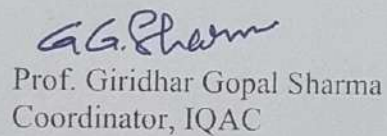 G.G. Sharm
Prof. Giridhar Gopal Sharma
Coordinator, IQAC